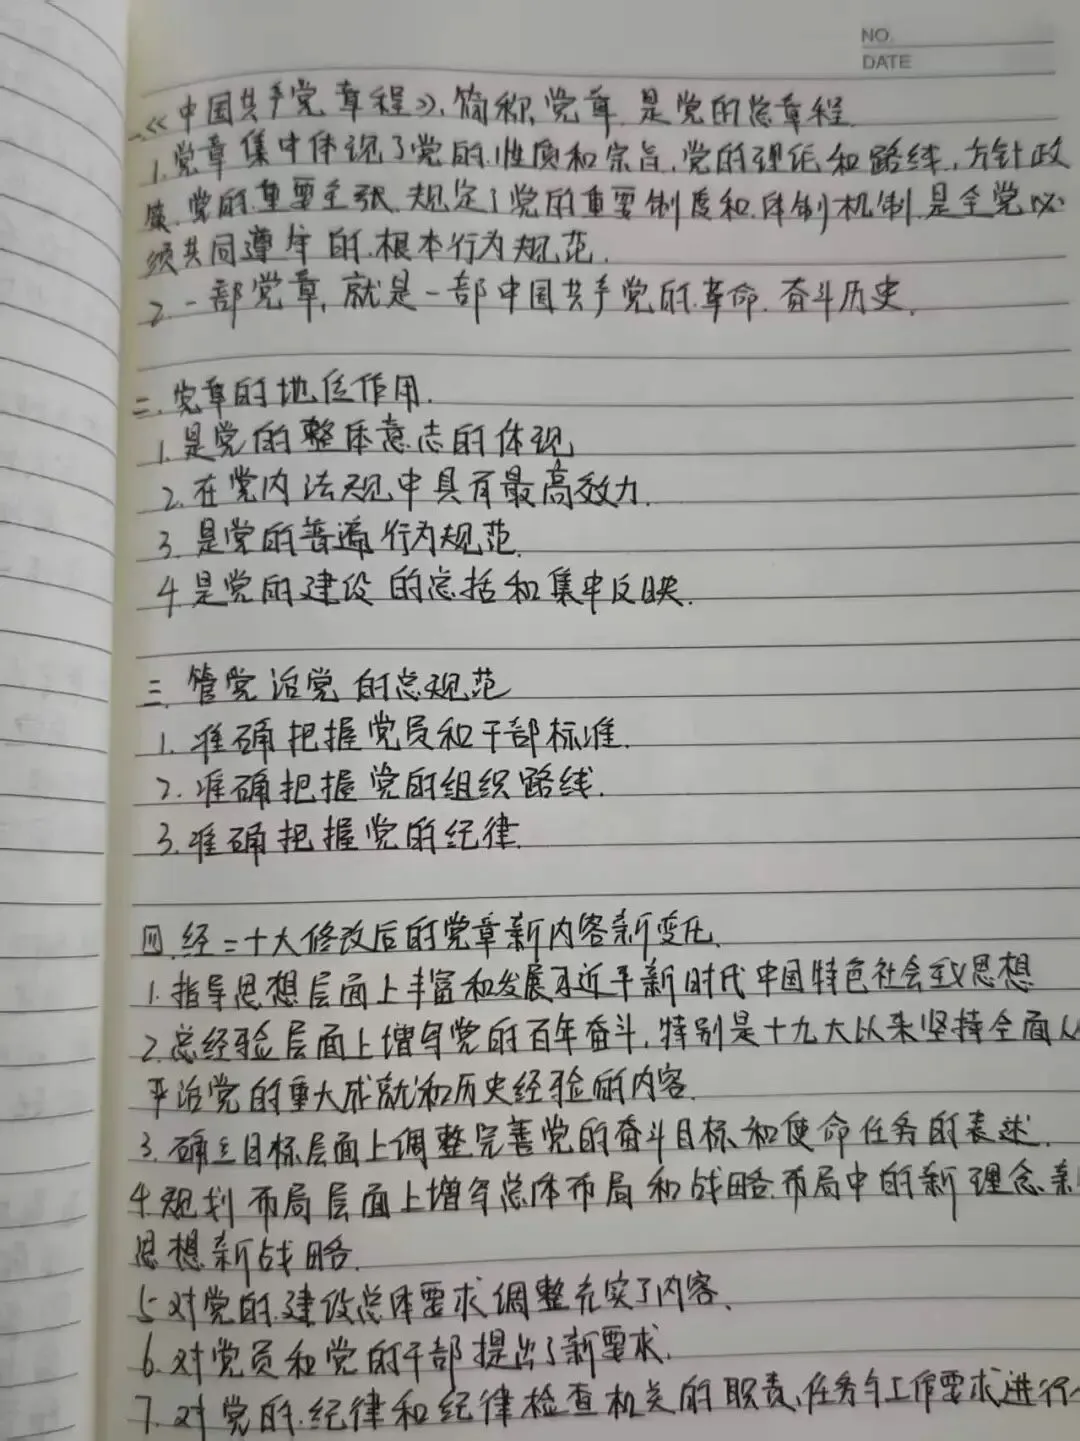 NO.
DATE
一.《中国共产党章程》,简称党章.是党的总章程.
1.党章集中体现了党的性质和宗旨.党的理论和路线.方针政
策.党的重要主张.规定了党的重要制度和体制机制.是全党必
须共同遵守的.根本行为规范.
2.一部党章,就是一部中国共产党的.革命.奋斗历史.
二.党章的地位作用.
1.是党的整体意志的体现
2.在党内法规中具有最高效力.
3.是党的普遍行为规范.
4.是党的建设的总括和集中反映.
三.管党治党的总规范
1.准确把握党员和干部标准.
2.准确把握党的组织路线.
3.准确把握党的纪律.
四.经二十大修改后的党章新内容新变化.
1.指导思想层面上丰富和发展习近平新时代中国特色社会主义思想
2.总经验层面上增写党的百年奋斗,特别是十九大以来坚持全面从
严治党的重大成就和历史经验的内容.
3.确立目标层面上调整完善党的奋斗目标和使命任务的表述.
4.规划布局层面上增写总体布局和战略布局中的新理念新
思想新战略.
5.对党的.建设总体要求调整充实了内容.
6.对党员和党的干部提出了新要求.
7.对党的.纪律和纪律检查机关的职责,任务与工作要求进行